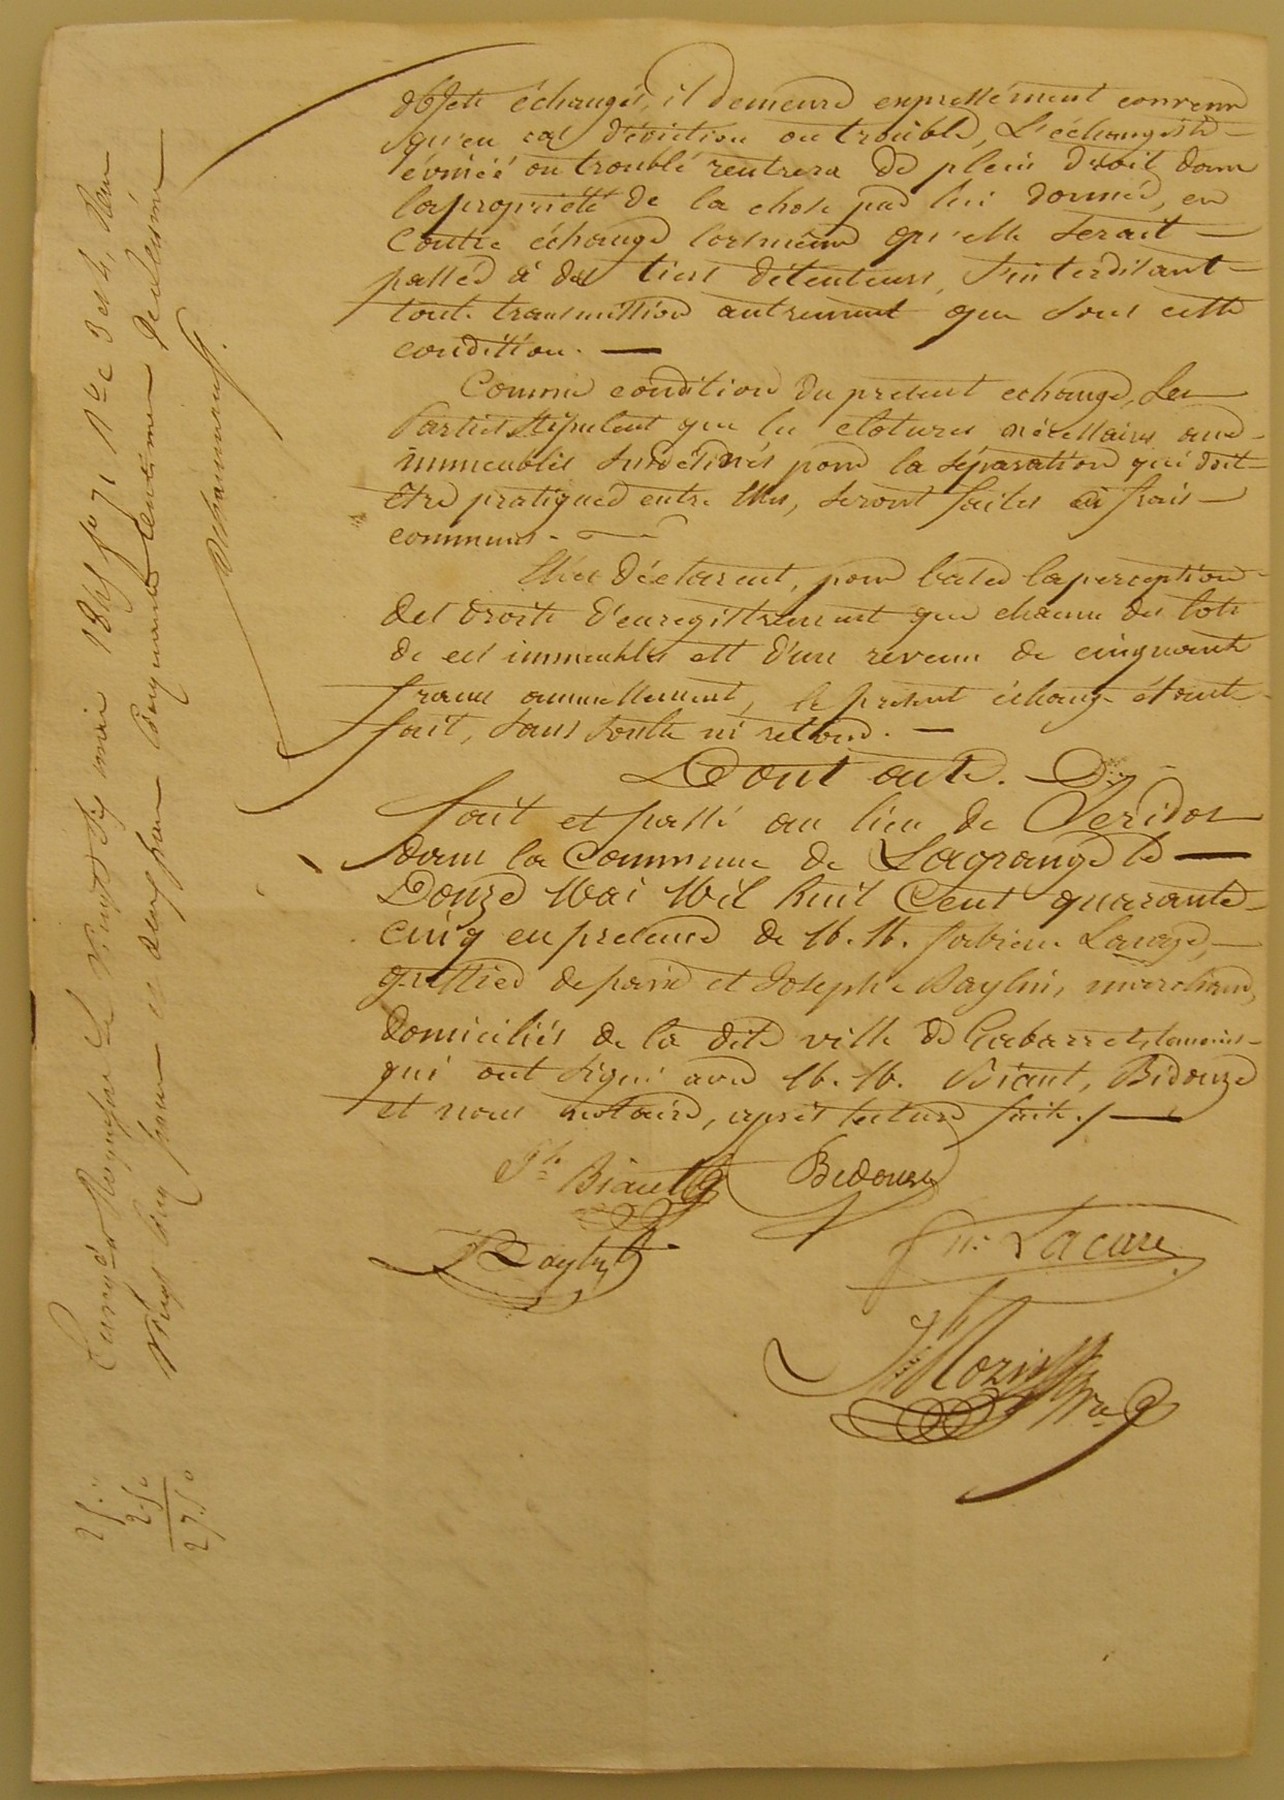 objets échangés, il demeure expressément convenu
qu'en cas d'éviction ou trouble, L'échangiste
évincé ou troublé rentrera de plein droit dans
la propriété de la chose par lui donnée, en
Contre échange lorsmême qu'elle serait
passée à des tiers détenteurs, s'interdisant
toute transmission autrement que sous cette
condition.
Comme condition du présent echange, Les
Parties stipulent que les clotures nécessaires aux
immeubles susdésignés pour la séparation qui doit
être pratiquée entre elles, seront faites à frais
communs.
Elles déclarent, pour baser la perception
des droits d'enregistrement que chacun des lots
de ces immeubles est d'un revenu de cinquante
francs annuellement, le présent échange étant
fait, sans soulte ni retour.
Dont acte.
fait et passé au lieu de
dans la Commune de Lagrange le
Douze Mai Mil huit Cent quarante
Cinq en présence de M. M. fabien
greffier de paix et Joseph Baylin, marchand,
domiciliés de la dite ville de Gabarret, temoins
qui ont signé avec M. M. Biaut, Bidouze
et nous notaire, après lecture faite ./
Biaut Bidouze
Baylin
Lacave
Enregistré le vingt six mai 1845 f° 71 R° C 3 et 4, Reçu
vingt cinq francs et deux francs cinquante centimes de décime
25 "
2.50
27.50